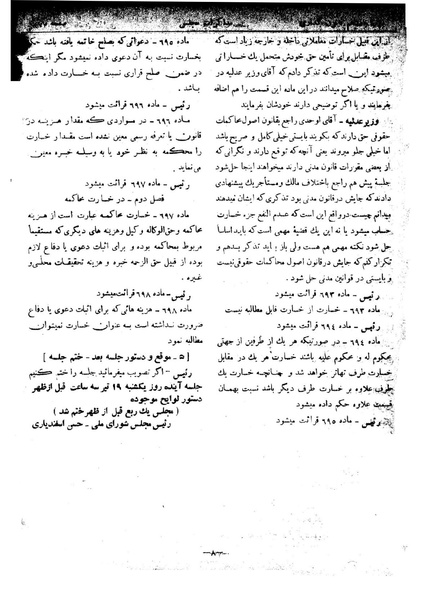 از این قبیل خسارات معاملاتی داخله و خارجه زیاد است که
طرف مقابل برای تأمین حق خودش متحمل یک خساراتی
میشود این است که تذکر دادم که آقای وزیر عدلیه در
صورتیکه صلاح میدانند در این ماده این قسمت را هم اضافه
بفرمایند و یا اگر توضیحی دارند خودشان بفرمایند
وزیر عدلیه - آقای اوحدی راجع بقانون اصول محاکمات
حقوقی حق دارند که بگویند بایستی خیلی کامل و صریح باشد
اما خیلی جلو میروند یعنی آنچه که توقع دارند و نگرانی که
از بعضی مقررات قانون مدنی دارند میخواهند اینجا حل شود
جلسهٔ پیش هم راجع باختلاف مالک و مستأجر یک پیشنهادی
دادند که جایش در قانون مدنی بود تذکری که ایشان نمیدهند
میدانم چیست در واقع این است که عدم النفع جزء خسارت
حساب میشود یا نه این یک قضیهٔ مهمی است که باید اساساً
حل شود نکته مهمی هم هست ولی باز باید تذکر بدهم و
تکرار کنم که جایش در قانون اصول محاکمات حقوقی نیست
و بایستی در قوانین مدنی حل شود.
رئیس - ماده ۶۹۳ قرائت میشود
ماده ۶۹۳ - خسارت از خسارت قابل مطالبه نیست
رئیس - ماده ۶۹۴ قرائت میشود
ماده ۶۹۴ - در صورتیکه هر یک از طرفین از جهتی
محکوم له و محکوم علیه باشند خسارت هر یک در مقابل
خسارت طرف تهاتر خواهد شد و چنانچه خسارت یک
طرف علاوه بر خسارت طرف دیگر باشد نسبت بهمان
قسمت علاوه حکم داده میشود
رئیس - ماده ۶۹۵ قرائت میشود
ماده ۶۹۵ - دعوائی که بصلح خاتمه یافته باشد حکم
بخسارت نسبت به آن دعوی داده نمیشود مگر اینکه
در ضمن صلح قراری نسبت بخسارت داده شده
باشد.
رئیس - ماده ۶۹۶ قرائت میشود
ماده ۶۹۶ - در مواردی که مقدار هزینه در
قانون یا تعرفه رسمی معین نشده است مقدار خسارت
را محکمه به نظر خود یا به وسیله خبره معین
می نماید.
رئیس - ماده ۶۹۷ قرائت میشود
فصل دوم - در خسارت محاکمه
ماده ۶۹۷ - خسارت محاکمه عبارت است از هزینه
محاکمه و حق الوکاله وکیل و هزینه های دیگری که مستقیماً
مربوط بمحاکمه بوده و برای اثبات دعوی یا دفاع لازم
بوده از قبیل حق الزحمه خبره و هزینه تحقیقات محلی و
غیره.
رئیس - ماده ۶۹۸ قرائت میشود
ماده ۶۹۸ - هزینه هائی که برای اثبات دعوی یا دفاع
ضرورت نداشته است به عنوان خسارت نمیتوان
مطالبه نمود
[ ۵ - موقع و دستور جلسه بعد - ختم جلسه ]
رئیس - اگر تصویب میفرمائید جلسه را ختم کنیم
جلسه آینده روز یکشنبه ۱۹ تیر سه ساعت قبل از ظهر
دستور لوایح موجوده
( مجلس یک ربع قبل از ظهر ختم شد )
رئیس مجلس شورای ملی - حسن اسفندیاری
—۸—